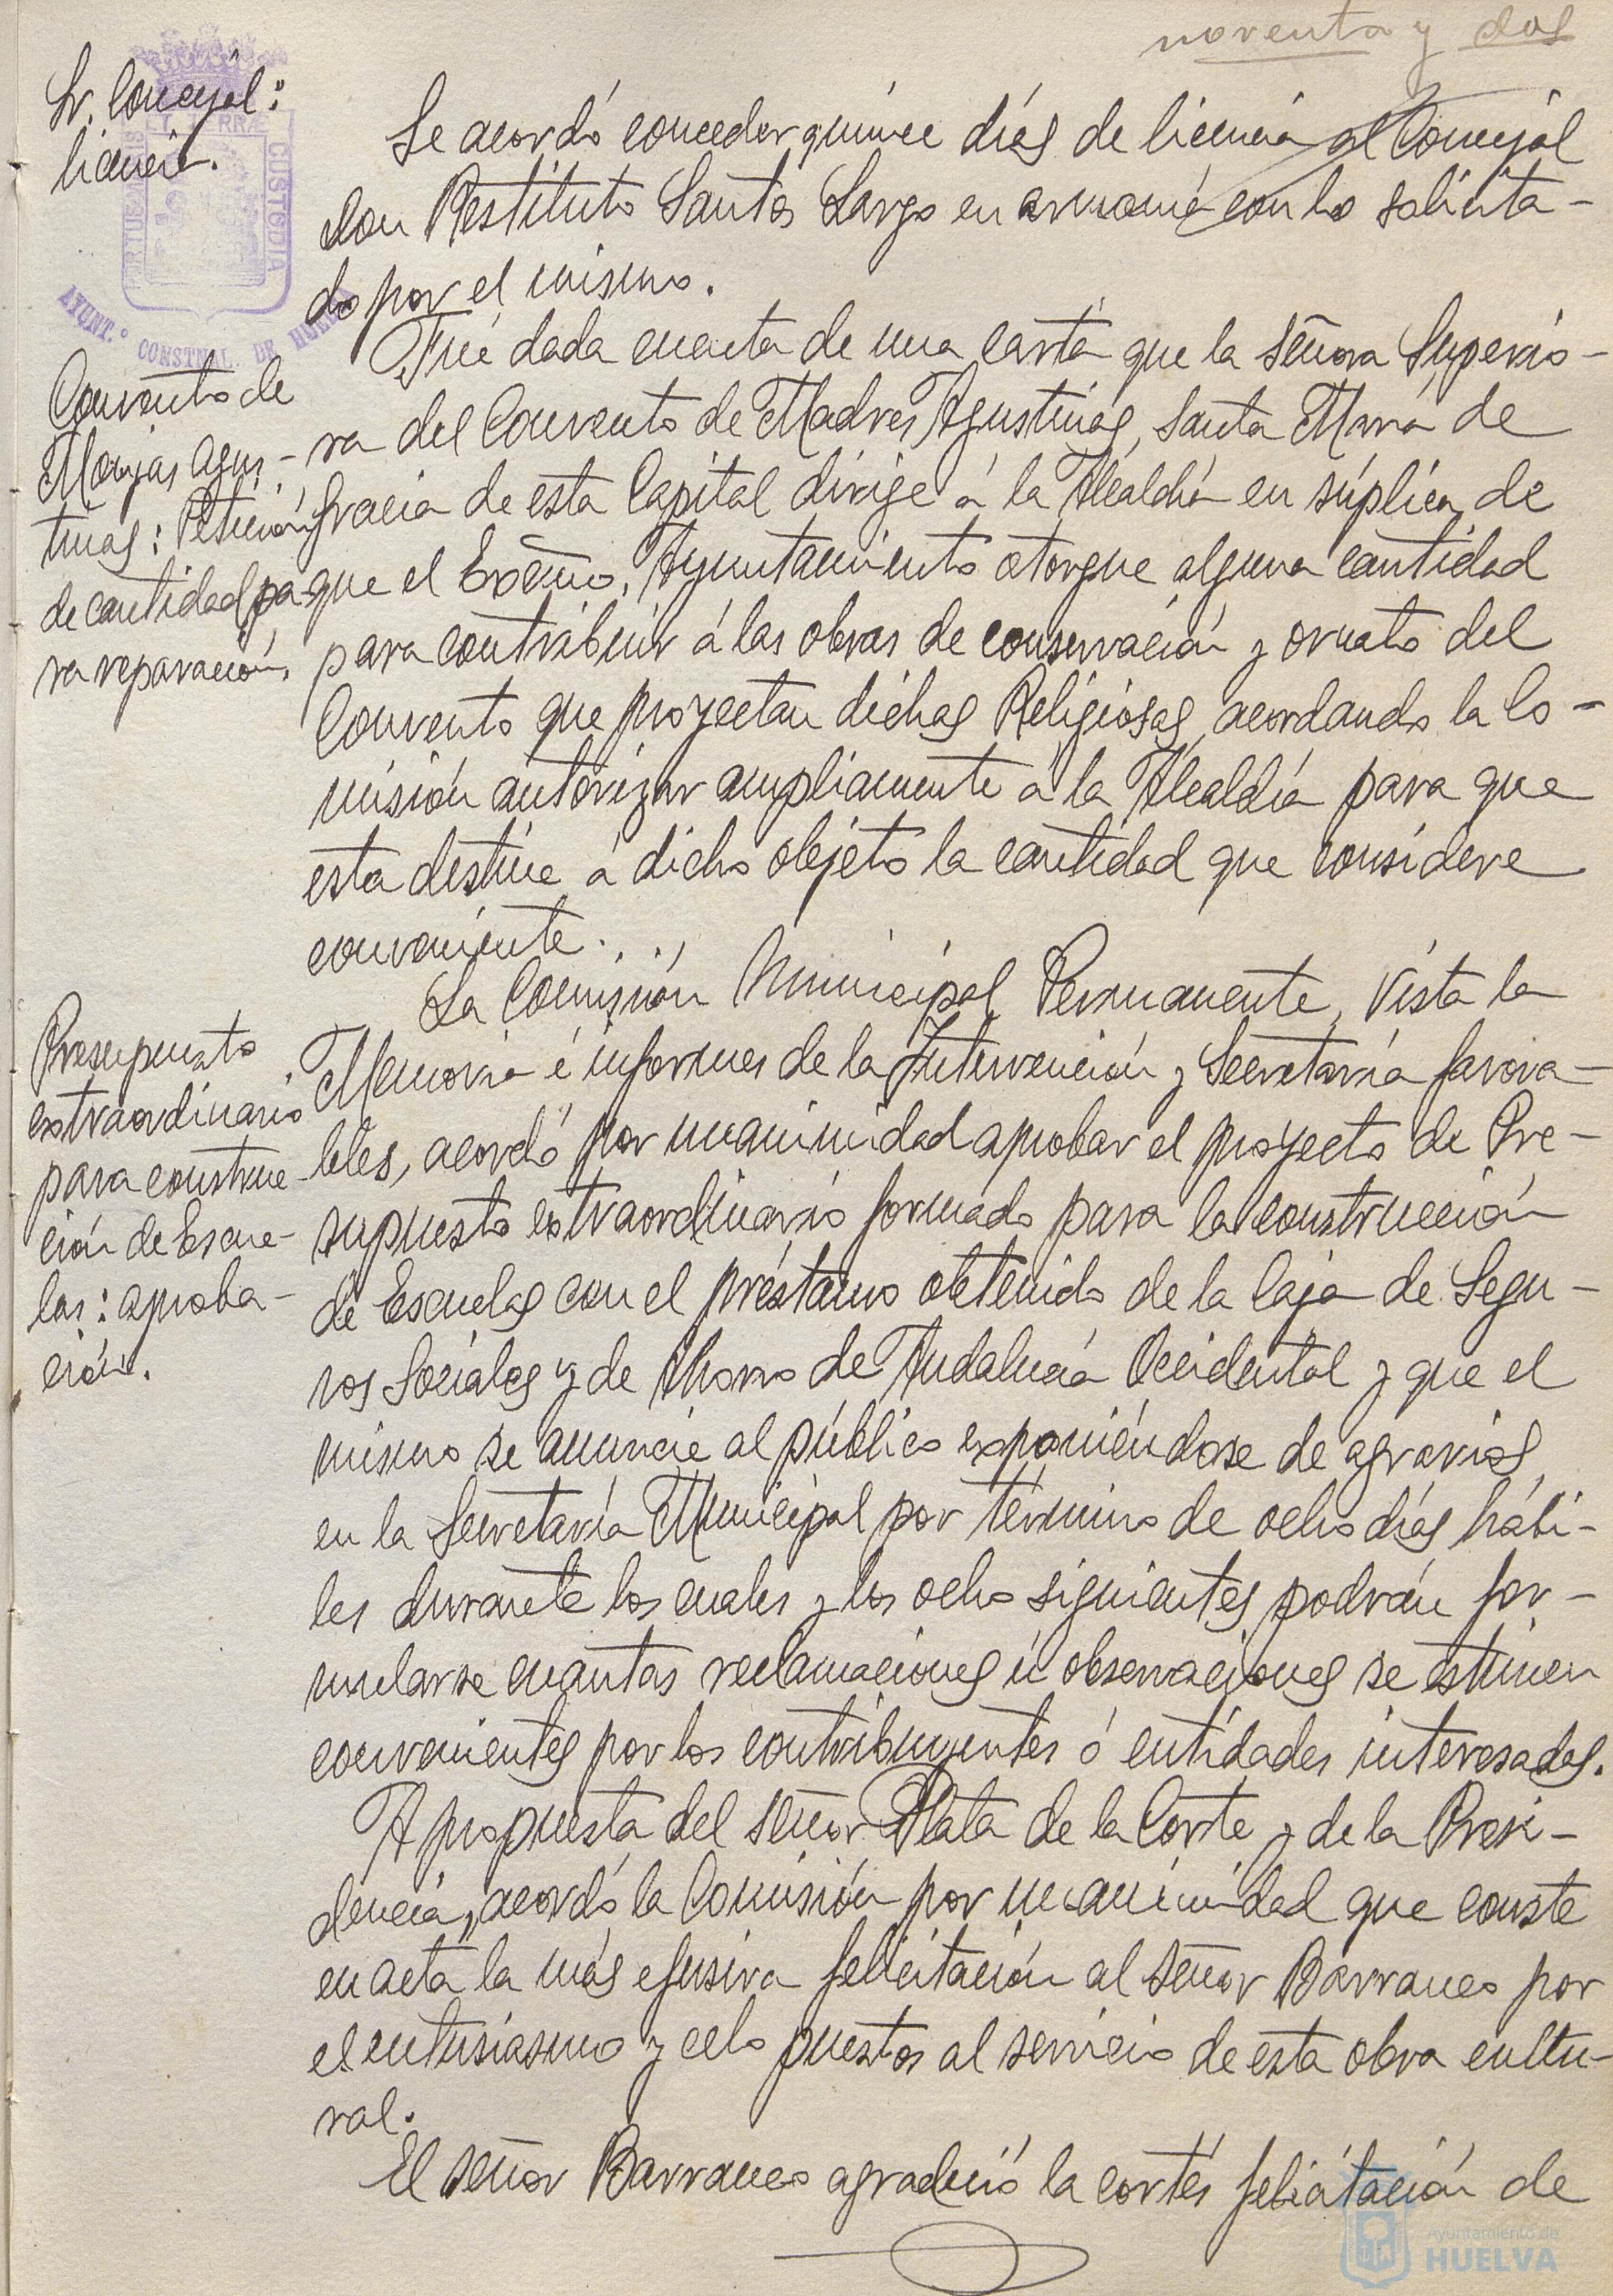 noventa y dos
Sr. Concejal:
licencia.
PORTUS MARIS
ET TERRÆ
CUSTODIA
AYUNT.º CONSTNAL. DE HUELVA
Se acordó conceder quince días de licencia al Concejal
don Restituto Santos Largo en armonía con lo solicita-
do por el mismo.
Convento de
Monjas Agus-
tinas: Petición
de cantidad pa-
ra reparación.
Fué dada cuenta de una carta que la señora Superio-
ra del Convento de Madres Agustinas, Santa María de
Gracia de esta Capital dirige á la Alcaldía en súplica de
que el Excmo. Ayuntamiento otorgue alguna cantidad
para contribuir á las obras de conservación y ornato del
Convento que proyectan dichas Religiosas, acordando la Co-
misión autorizar ampliamente á la Alcaldía para que
esta destine á dicho objeto la cantidad que considere
conveniente.
Presupuesto
extraordinario
para construc-
ción de Escue-
las: aproba-
ción.
La Comisión Municipal Permanente, vista la
Memoria é informes de la Intervención y Secretaría favora-
bles, acordó por unanimidad aprobar el proyecto de Pre-
supuesto extraordinario formado para la construcción
de Escuelas con el préstamo obtenido de la Caja de Segu-
ros Sociales y de Ahorro de Andalucía Occidental y que el
mismo se anuncie al público exponiéndose de agravios
en la Secretaría Municipal por término de ocho días hábi-
les durante los cuales y los ocho siguientes podrán for-
mularse cuantas reclamaciones ú observaciones se estimen
convenientes por los contribuyentes ó entidades interesadas.
A propuesta del señor Plata de la Corte y de la Presi-
dencia, acordó la Comisión por unanimidad que conste
en acta la más efusiva felicitación al señor Barranco por
el entusiasmo y celo puestos al servicio de esta obra cultu-
ral.
El señor Barranco agradeció la cortés felicitación de
Ayuntamiento de
HUELVA